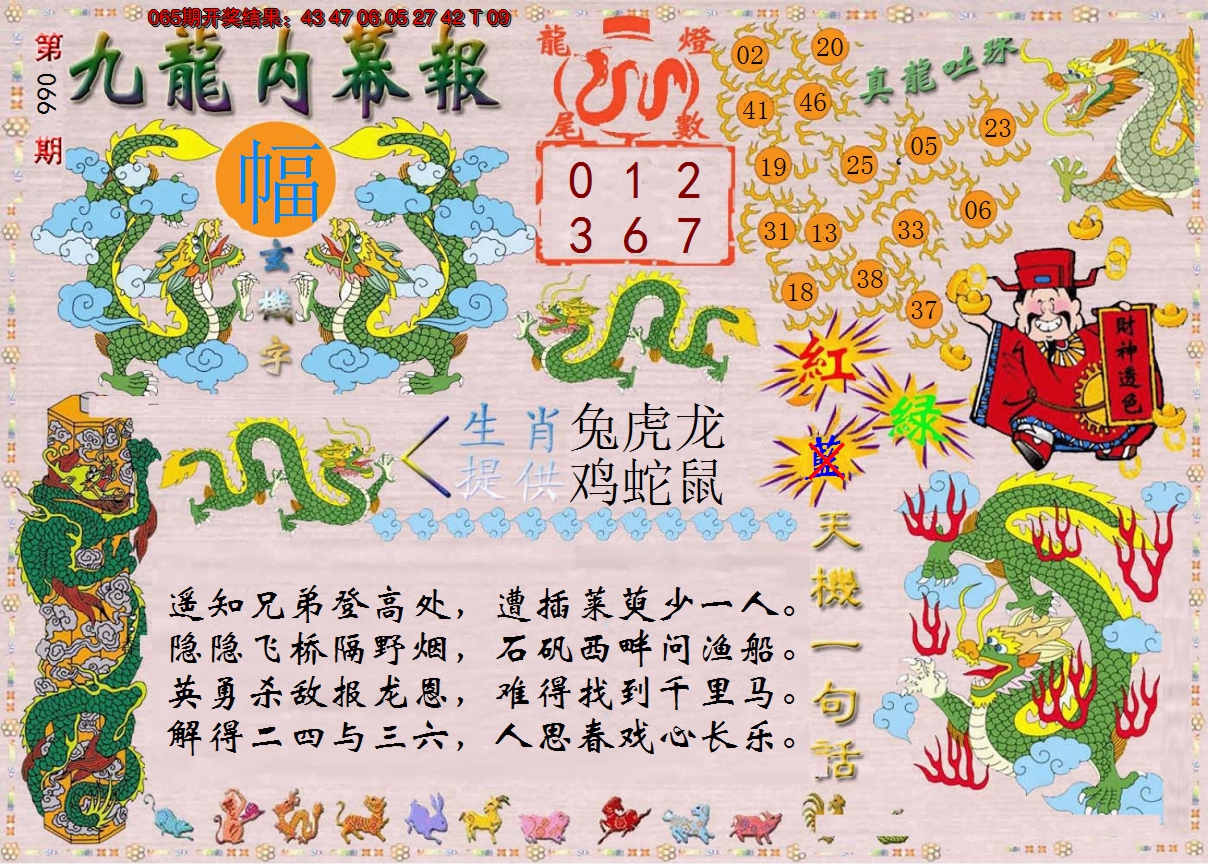 065期开奖结果：43 47 06 05 27 42 T 09
第066期
九龍内幕報
幅
玄機字
龍燈尾數
0 1 2
3 6 7
真龍吐珠
02 20
41 46
19 25 05 23
31 13 33 06
18 38 37
財神透色
紅
緑
藍
生肖提供
兔虎龙
鸡蛇鼠
天機一句話
遥知兄弟登高处，遭插菜萸少一人。
隐隐飞桥隔野烟，石矶西畔问渔船。
英勇杀敌报龙恩，难得找到千里马。
解得二四与三六，人思春戏心长乐。